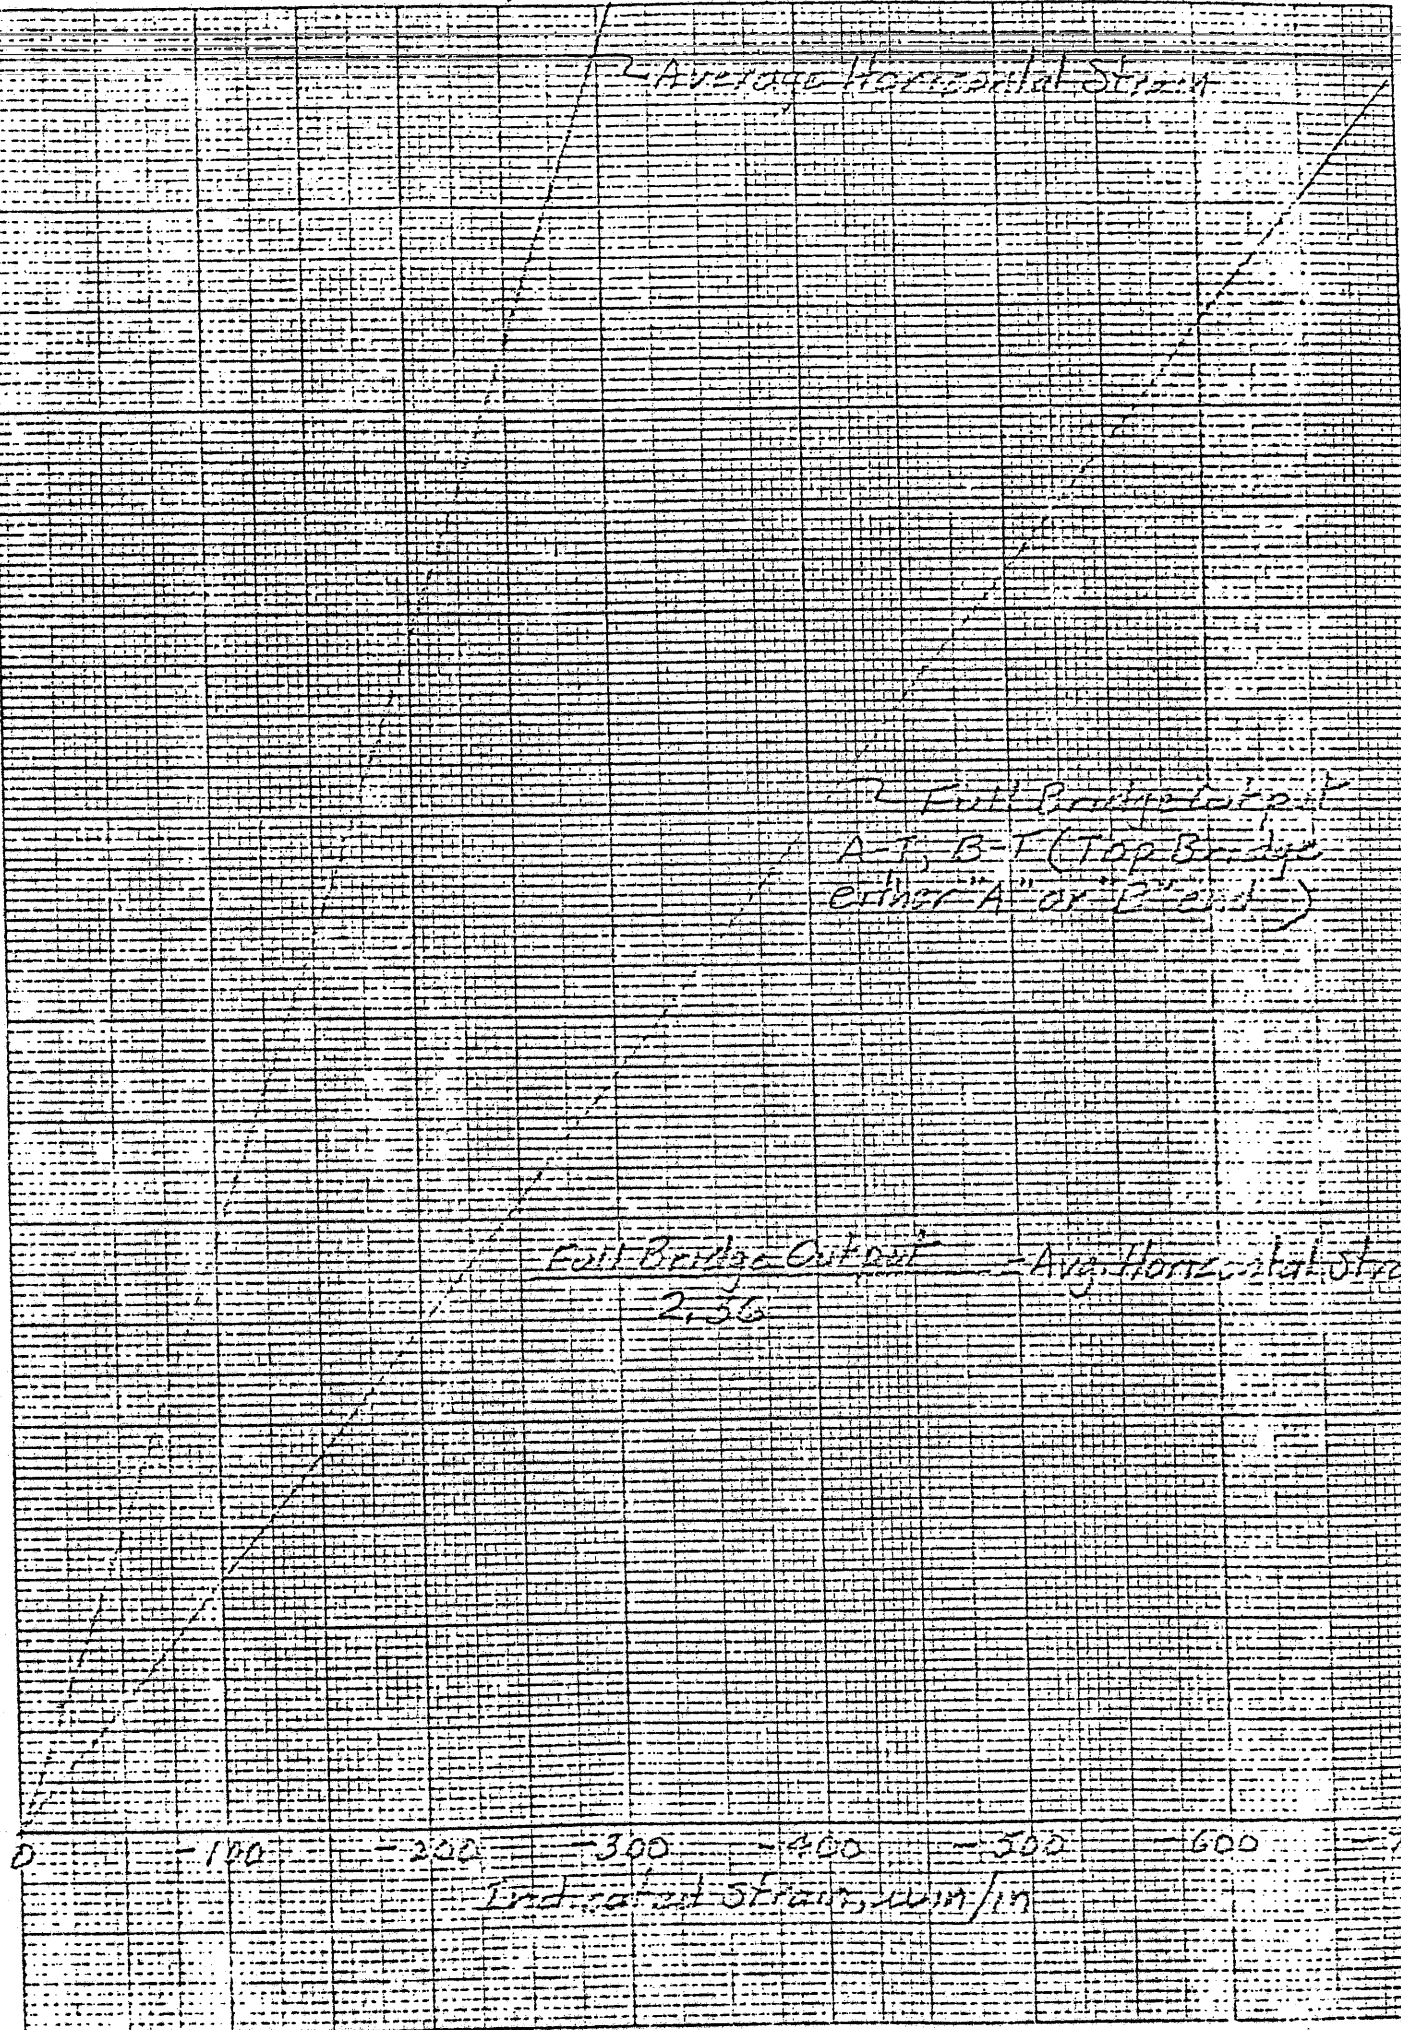 Average Horizontal Strain
Full Bridge Output
A-T, B-T (Top Bridge
either "A" or "B" end)
Full Bridge Output = Avg. Horizontal Stra
2.36
0 -100 -200 -300 -400 -500 -600 -7
Indicated Strain, μin/in